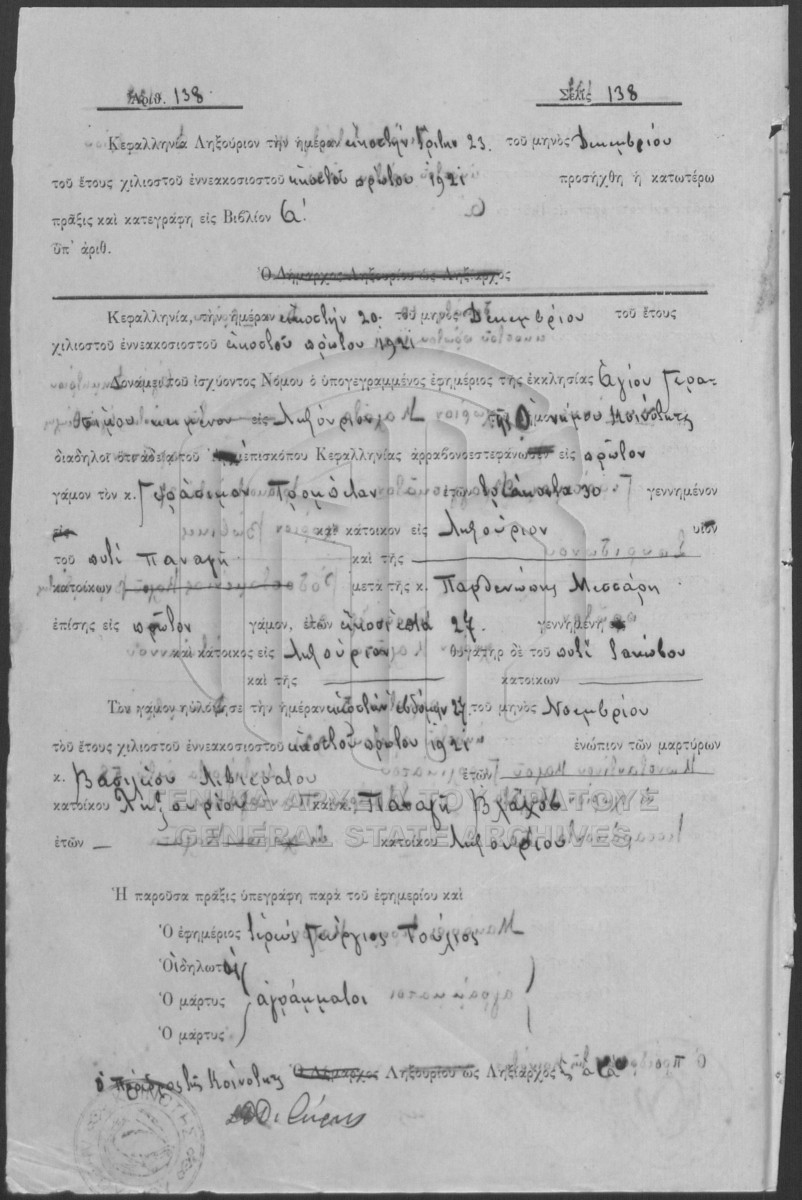 Ἀριθ. 138
Σελὶς 138
Κεφαλληνία Ληξούριον τὴν ἡμέραν εἰκοστὴν τρίτην 23. τοῦ μηνὸς Δεκεμβρίου
τοῦ ἔτους χιλιοστοῦ ἐννεακοσιοστοῦ εἰκοστοῦ πρώτου 1921 προσήχθη ἡ κατωτέρω
πρᾶξις καὶ κατεγράφη εἰς Βιβλίον α΄
ὑπ' ἀριθ.
Ὁ Δήμαρχος Ληξουρίου ὡς Ληξίαρχος
Κεφαλληνία, τὴν ἡμέραν εἰκοστὴν 20. τοῦ μηνὸς Δεκεμβρίου τοῦ ἔτους
χιλιοστοῦ ἐννεακοσιοστοῦ εἰκοστοῦ πρώτου 1921
Δυνάμει τοῦ ἰσχύοντος Νόμου ὁ ὑπογεγραμμένος ἐφημέριος τῆς ἐκκλησίας Ἁγίου Γερα-
σίμου κειμένου εἰς Ληξούριον τῆς ὁμωνύμου Κοινότητος
διαδηλοῖ ὅτι ἀδείᾳ τοῦ ἐπισκόπου Κεφαλληνίας ἀρραβονοεστεφάνωσεν εἰς πρῶτον
γάμον τὸν κ. Γεράσιμον ἐτῶν τριάκοντα 30 γεννημένον
εἰς καὶ κάτοικον εἰς Ληξούριον υἱὸν
τοῦ ποτὲ Παναγῆ καὶ τῆς
κατοίκων μετὰ τῆς κ. Παρθενώπης Μεσσάρη
ἐπίσης εἰς πρῶτον γάμον, ἐτῶν εἰκοσιεπτά 27. γεννημένη
καὶ κάτοικος εἰς Ληξούριον θυγάτηρ δὲ τοῦ ποτὲ Ἰακώβου
καὶ τῆς κατοίκων
Τὸν γάμον ηὐλόγησε τὴν ἡμέραν εἰκοστὴν ἑβδόμην 27. τοῦ μηνὸς Νοεμβρίου
τοῦ ἔτους χιλιοστοῦ ἐννεακοσιοστοῦ εἰκοστοῦ πρώτου 1921 ἐνώπιον τῶν μαρτύρων
κ. Βασιλείου Λιβιεράτου ἐτῶν
κατοίκου Ληξουρίου καὶ κ. Παναγῆ Βλάχου
ἐτῶν κατοίκου Ληξουρίου
ΓΕΝΙΚΑ ΑΡΧΕΙΑ ΤΟΥ ΚΡΑΤΟΥΣ
GENERAL STATE ARCHIVES
Ἡ παροῦσα πρᾶξις ὑπεγράφη παρὰ τοῦ ἐφημερίου καὶ
Ὁ ἐφημέριος ἱερεὺς Γεώργιος
Οἱ δηλωταὶ
Ὁ μάρτυς ἀγράμματοι
Ὁ μάρτυς
ὁ Πρόεδρος τῆς Κοινότητος Ὁ Δήμαρχος Ληξουρίου ὡς Ληξίαρχος